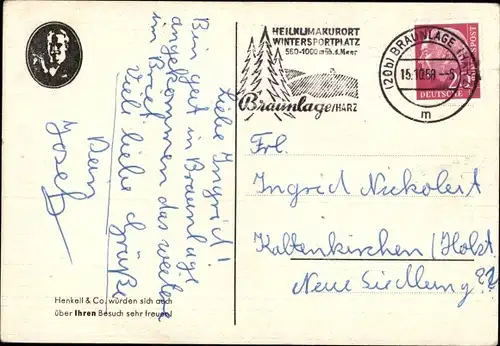 Liebe Ingrid!
Bin gut in Braunlage
angekommen das weitere
im Brief.
Viele liebe Grüße
Dein
Josef
Henkell & Co. würden sich auch
über Ihren Besuch sehr freuen!
HEILKLIMAKURORT
WINTERSPORTPLATZ
560-1000 m üb. d. Meer
Braunlage/HARZ
(20b) BRAUNLAGE (HARZ)
15.10.59 -5
m
DEUTSCHE BUNDESPOST
Frl.
Ingrid Nickoleit
Kaltenkirchen/Holst.
Neue Siedlung 22